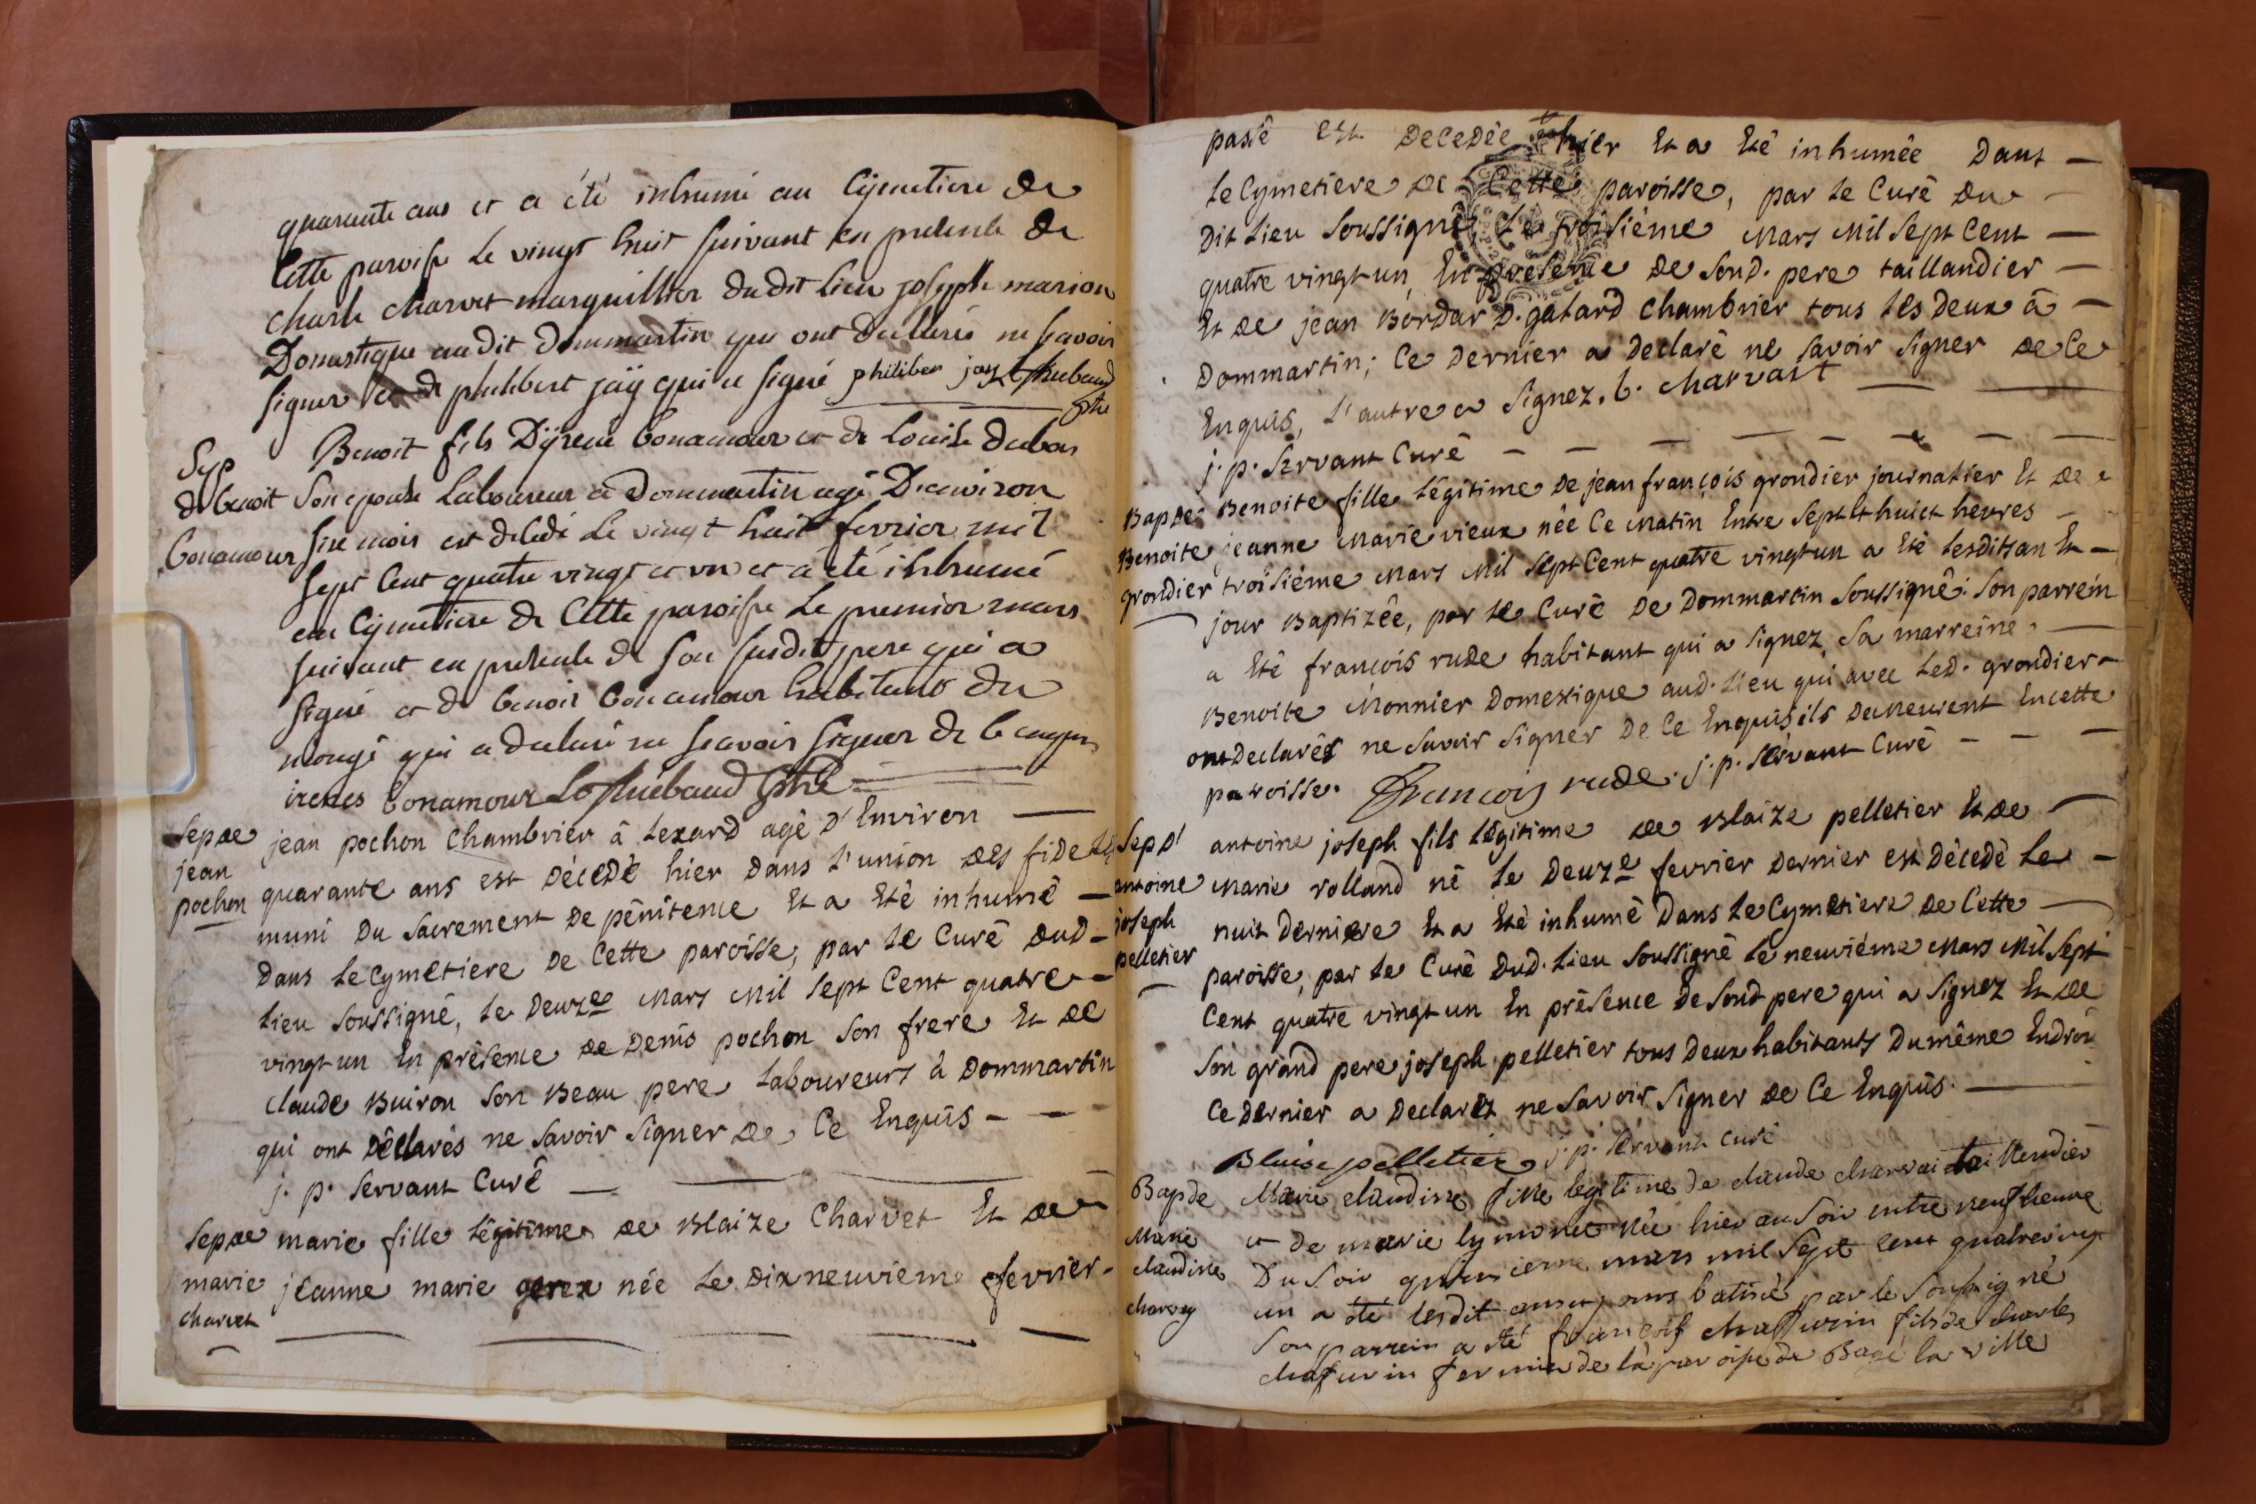 quarante ans et a été inhumé au Cijmetiere de
Cette paroisse le vingt huit suivant en presence de
Charle Charvet marguillier du dit lieu joseph marion
Domestique au dit dommartin qui ont declarés ne scavoir
signer et de philibert jaÿ qui a signé philiber jay L. Thiebaud
ptre
Sep
de benoit
Bonamour
Benoit fils D'ÿrenée bonamour et de Louise dubois
son epouse Laboureur a Dommartin agé D'environ
six mois est decedé le vingt huit fevrier mil
sept Cent quatre vingt et un et a été inhumé
au Cijmetiere de Cette paroisse Le premier mars
suivant en presence de son susdit pere qui a
signé et de benoit bonamour habitant du
mongé qui a declaré ne scavoir signer de ce enquis
irenes bonamour L Thiebaud ptre
Sep de
jean
pochon
jean pochon Chambrier â Lexard agé d'Environ
quarante ans est décedé hier dans l'union des fidelles
muni du Sacrement de pênitence Et a Eté inhumê
dans le Cymetiere de Cette paroisse, par le Curê dud
lieu soussigné, le deuxe mars mil sept Cent quatre
vingt un En présence de denis pochon son frere Et de
claude Buiron son Beau pere Laboureurs à dommartin
qui ont déclarés ne savoir signer de Ce Enquis
j. p. Servant Curê
Sep de
marie
charvet
marie fille Légitime de Blaize Charvet Et de
jeanne marie gerex née Le dix neuvieme fevrier
passé est decedée hier Et a Eté inhumêe dans
le Cymetiere de Cette paroisse, par le Curê du
dit lieu soussignê, le troisiéme mars mil sept Cent
quatre vingt un, En présence de sond. pere taillandier
Et de jean Bordar D. gatard Chambrier tous les deux â
Dommartin; Ce dernier a declarê ne savoir signer de Ce
Enquis, l'autre a signez. b. charvait
j. p. Servant Curê
Bap de
Benoite
grondier
Benoite fille Légitime de jean françois grondier journalier Et de
jeanne Marie vieux née Ce matin Entre Sept Et huict heures
troisiéme Mars Mil Sept Cent quatre vingt un a Eté lesdits an Et
jour Baptizée, par le Curê de Dommartin soussignê: son parrein
a Eté françois rude habitant qui a signez, sa marreine
Benoite Monnier Domestique aud. lieu qui avec led. grondier
ont declarês ne savoir signer de Ce Enquis, ils demeurent En cette
paroisse. François rude. j. p. Servant Curê
Sep d'
antoine
joseph
pelletier
antoine joseph fils Légitime de Blaize pelletier Et de
Marie rolland né le deuxe fevrier dernier est décedé le
nuit derniere Et a Eté inhumê dans le Cymetiere de Cette
paroisse, par le Curê dud. lieu soussignê le neuviéme Mars Mil Sept
Cent quatre vingt un En présence de sond pere qui a signez Et de
son grand pere joseph pelletier tous deux habitants du même Endroi
Ce dernier a declarez ne savoir signer de Ce Enquis.
Blaise pelletier j. p. Servant Curê
Bap de
Marie
claudine
charvey
Marie claudine fille legitime de claude charvai taillendier
et de marie lymonet née hier au soir entre neuf heure
Du soir mars mil sept cent quatrevingt
un a été lesdit an et jours batisé par le soussigné
Son parrein a été françois chaffurin fils de charles
chaffurin fermier de la paroisse de Bagé la ville